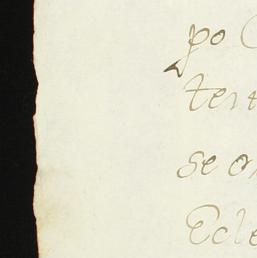 po
ter
se o
Ecle